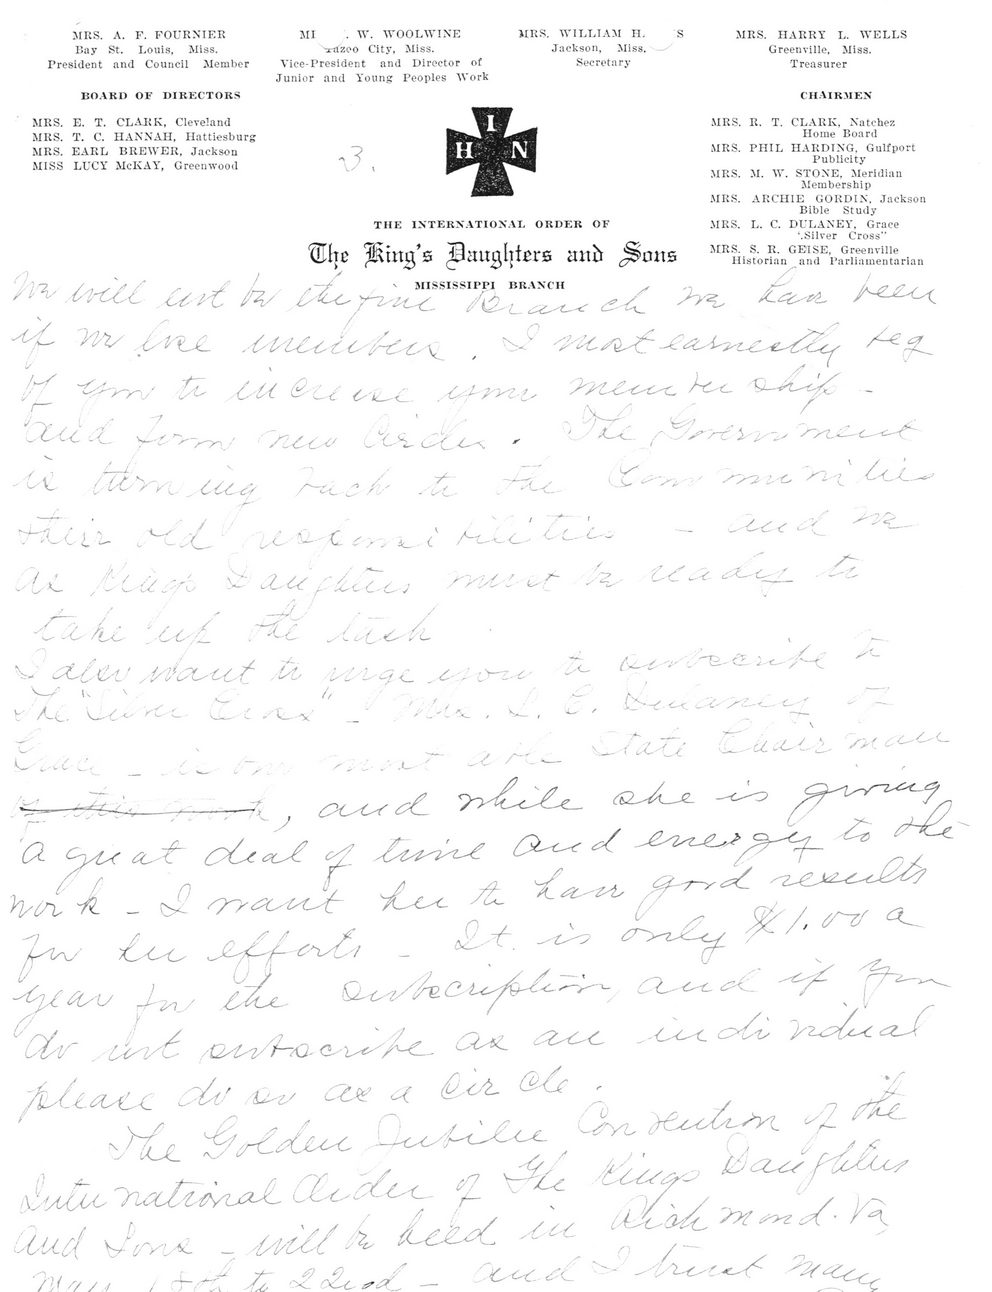 MRS. A. F. FOURNIER
Bay St. Louis, Miss.
President and Council Member
MI . W. WOOLWINE
Yazoo City, Miss.
Vice-President and Director of
Junior and Young Peoples Work
MRS. WILLIAM H. S
Jackson, Miss.
Secretary
MRS. HARRY L. WELLS
Greenville, Miss.
Treasurer
BOARD OF DIRECTORS
MRS. E. T. CLARK, Cleveland
MRS. T. C. HANNAH, Hattiesburg
MRS. EARL BREWER, Jackson
MISS LUCY McKAY, Greenwood
3.
I
H N
CHAIRMEN
MRS. R. T. CLARK, Natchez
Home Board
MRS. PHIL HARDING, Gulfport
Publicity
MRS. M. W. STONE, Meridian
Membership
MRS. ARCHIE GORDIN, Jackson
Bible Study
MRS. L. C. DULANEY, Grace
"Silver Cross"
MRS. S. R. GEISE, Greenville
Historian and Parliamentarian
THE INTERNATIONAL ORDER OF
The King's Daughters and Sons
MISSISSIPPI BRANCH
We will not be the fine Branch we have been
if we lose members. I most earnestly beg
of you to increase your membership -
and form new Circles. The Government
is turning back to the Communities
their old responsibilities - and we
as Kings Daughters must be ready to
take up the task
I also want to urge you to subscribe to
The "Silver Cross" - Mrs. L. C. Dulaney of
Grace - is our most able State Chairman
of this work, and while she is giving
a great deal of time and energy to the
work - I want her to have good results
for her efforts - It is only $1.00 a
year for the subscription, and if you
do not subscribe as an individual
please do so as a circle.
The Golden Jubilee Convention of the
International Order of The Kings Daughters
and Sons - will be held in Richmond. Va,
May 18th to 22nd - and I trust many